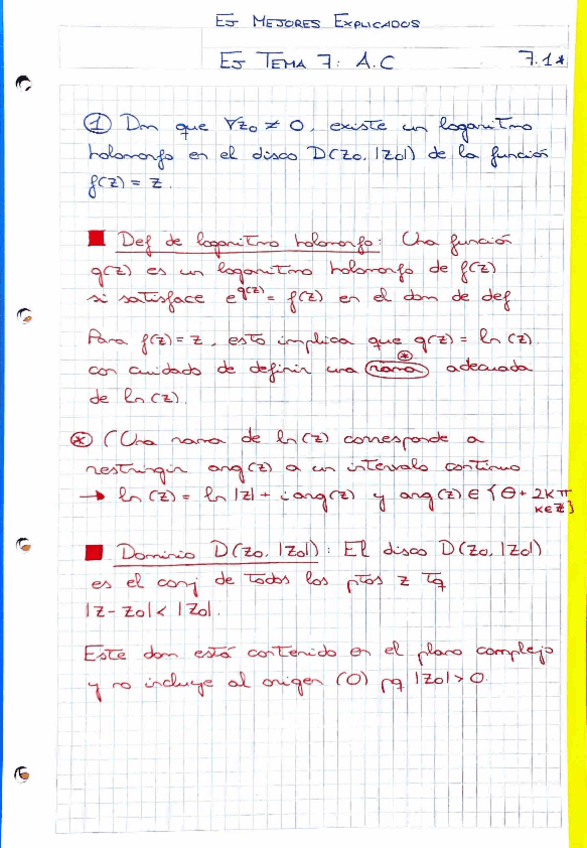 EJ MEJORES EXPLICADOS
EJ TEMA 7: A.C 7.1*
① Dm que ∀z₀ ≠ 0, existe un logaritmo
holomorfo en el disco D(z₀, |z₀|) de la función
f(z) = z.
Def de logaritmo holomorfo: Una función
g(z) es un logaritmo holomorfo de f(z)
si satisface e^g(z) = f(z) en el dom de def
Para f(z) = z, esto implica que g(z) = ln(z).
con cuidado de definir una rama ⊛ adecuada
de ln(z).
⊛ (Una rama de ln(z) corresponde a
restringir arg(z) a un intervalo continuo
→ ln(z) = ln|z| + i arg(z) y arg(z) ∈ {θ + 2kπ
k∈Z}
Dominio D(z₀, |z₀|): El disco D(z₀, |z₀|)
es el conj de todos los ptos z tq
|z - z₀| < |z₀|.
Este dom está contenido en el plano complejo
y no incluye al origen (0) pq |z₀| > 0.